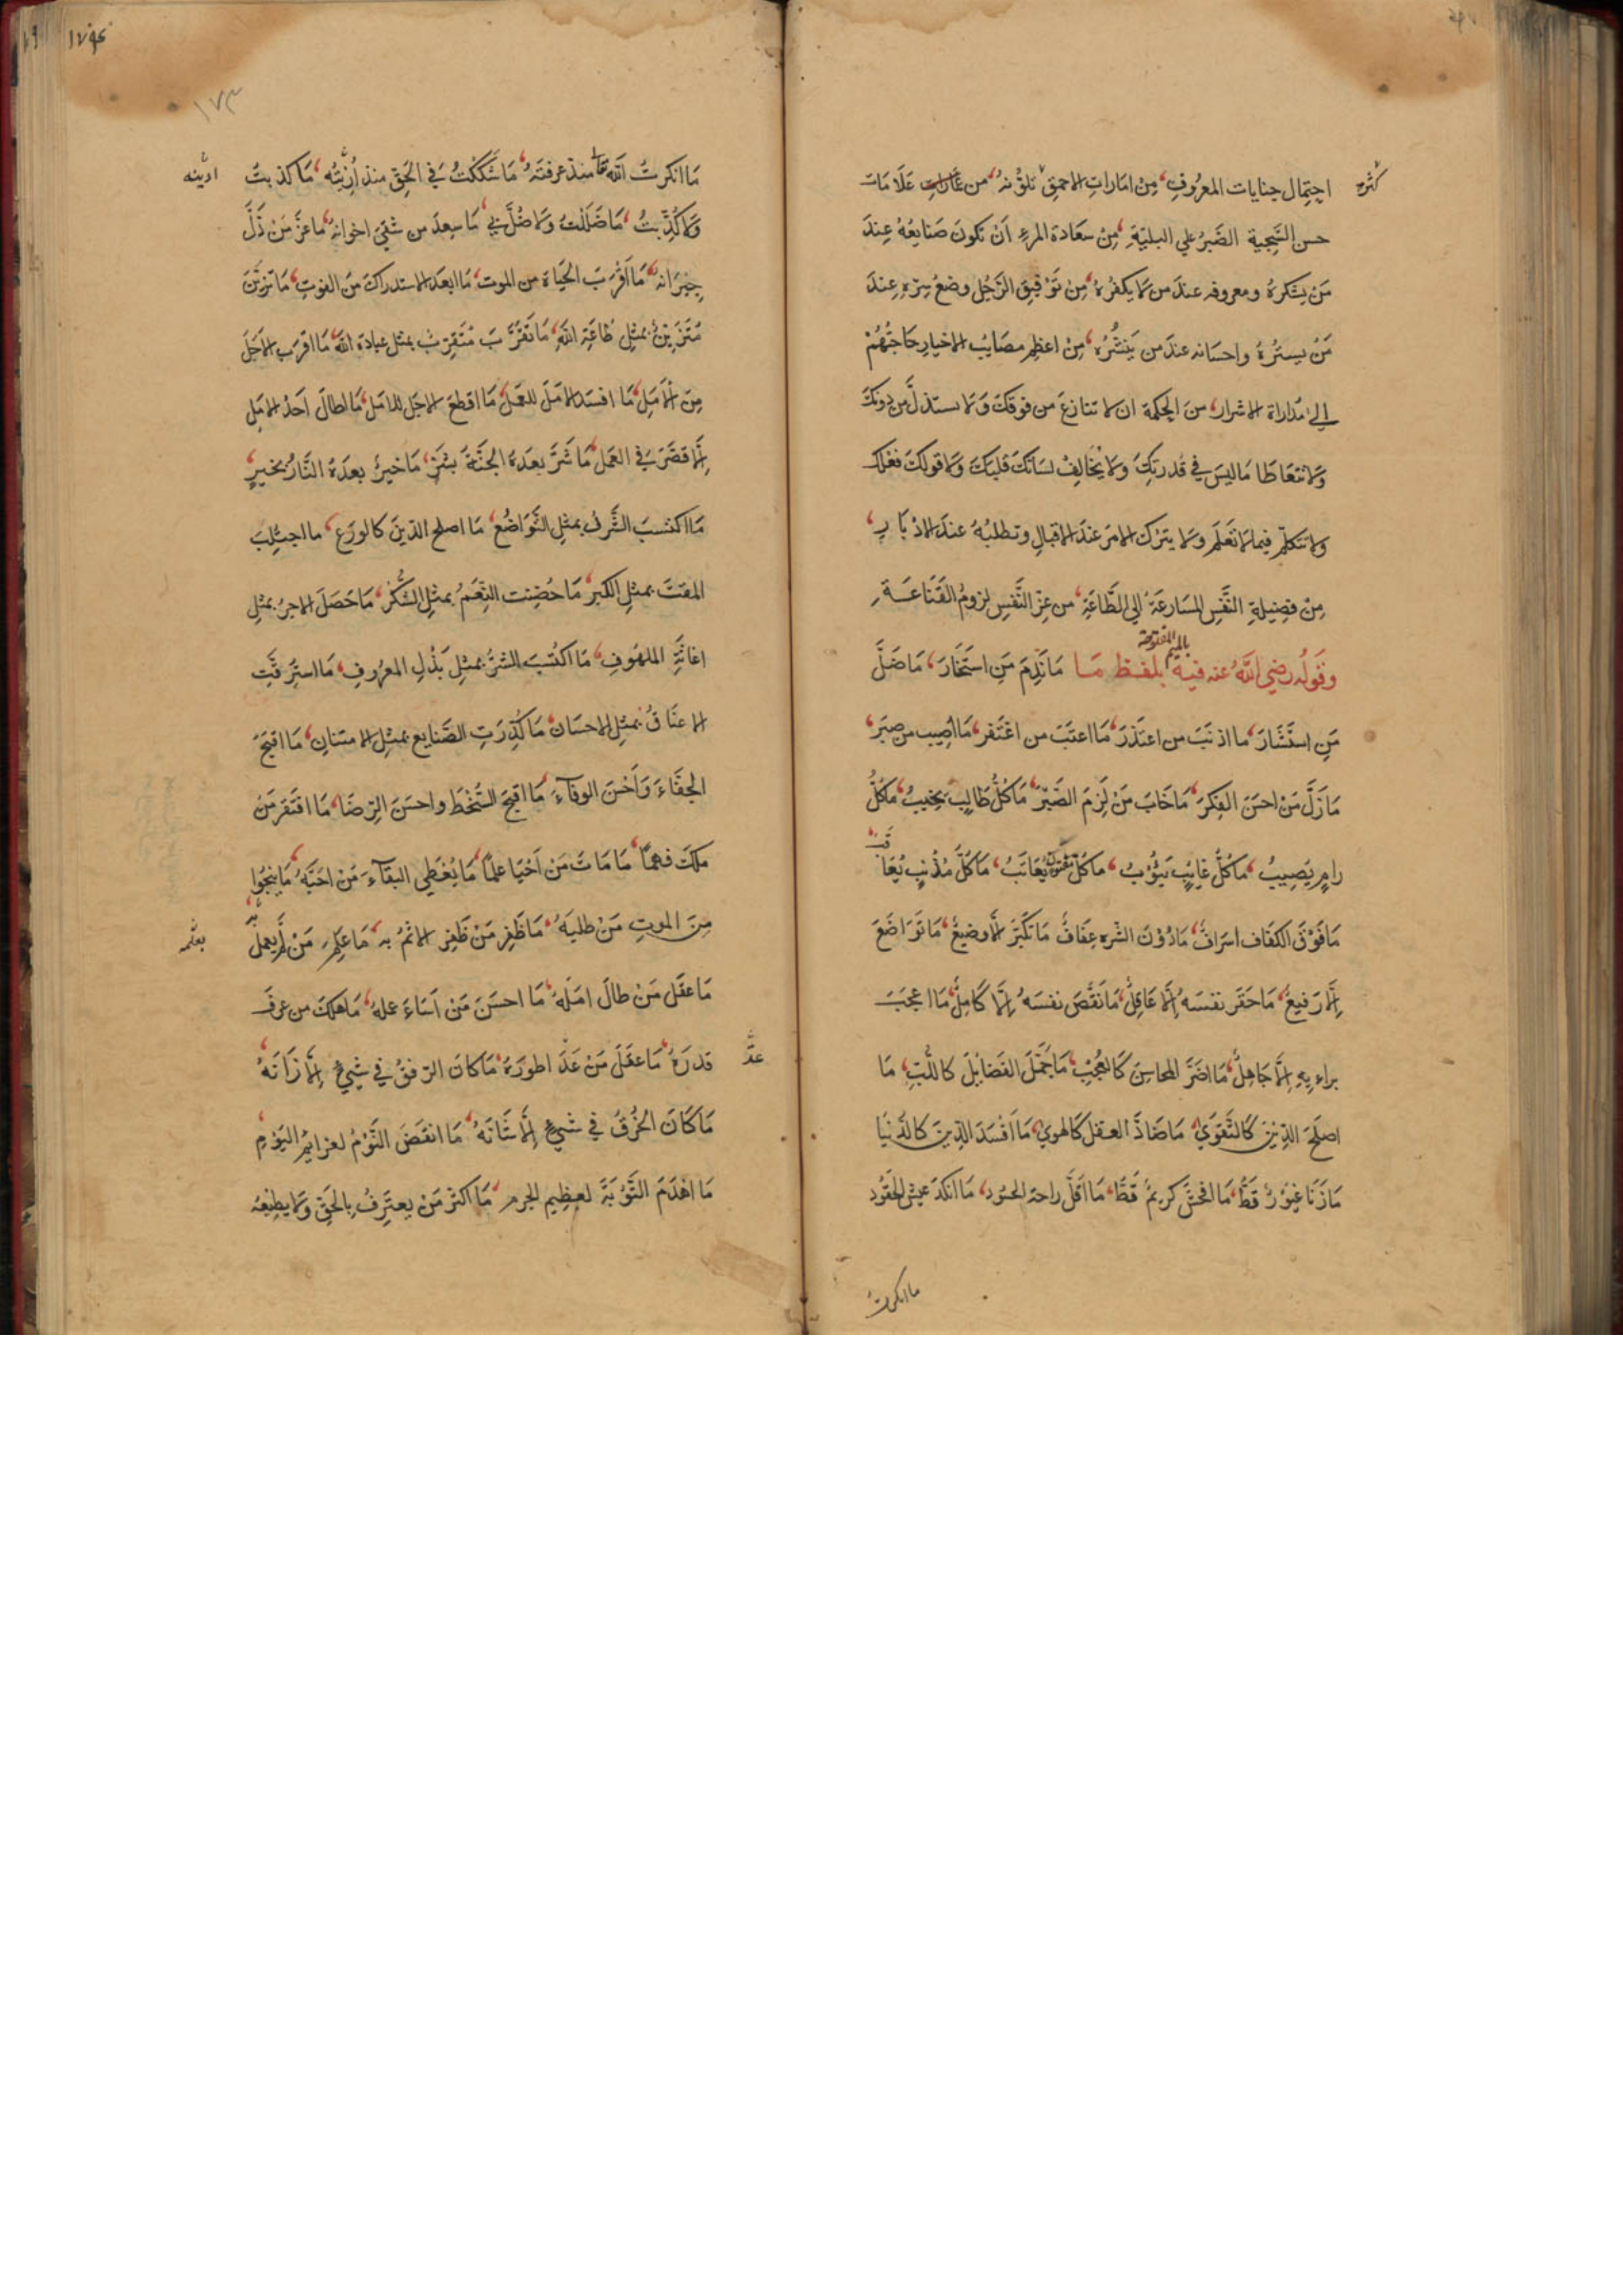 احتِمال جنايات المعرُوفِ، مِنْ امَاراتِ الاحمقِ تلوُّنهُ، من علَامَات
كثره
حسن السَّجِية الصَّبرُ علي البليّةِ، مِنْ سعَادة المرءِ اَنْ تكونَ صَنايعُهُ عِندَ
مَنْ يشكرهُ ومعروفه عندَ من لَا يكفُرهُ، مِنْ تَوْفيقِ الرَّجُلِ وضعُ سِرّهِ عِندَ
مَنْ يسترُهُ واحسَانه عندَ من يَنشُرُه، مِنْ اعظمِ مصَايبِ الاخيارِ حَاجَتُهُمْ
اِلي مُداراة الاشرار، منَ الحِكمة ان لا تنازعَ من فوقكَ وَلا تستذلَّ من دونكَ
وَلا تتعَاطا مَا ليسَ في قُدرتكَ وَلا يُخَالِفْ لسَانكَ قلبَكَ وَلا قولكَ فعلكَ
وَلا تتكلّم فيما لا تعَلم وَلا يترك الامرَ عندَ الاقبالِ وتطلبُهُ عندَ الادْبَارِ،
مِنْ فضِيلةِ النَّفسِ المسَارعَةُ الي الطَّاعَةِ، من عزِّ النَّفسِ لزومُ القَنَاعَـةِ
بالميم المفتوحة
وقَولُه رضي اللّهُ عنه فيه بلفـظ مَـا مَانَدِمَ مَنِ استَخَارَ، مَا ضَلَّ
مَنِ استَشَارَ، ما اذنبَ من اعتَذرَ، مَا اعتبَ من اغتَفر، مَا اُصِيب من صبَرَ،
مَا زَلَّ مَنْ احسَن الفِكرَ، مَا خَابَ مَنْ لَزِمَ الصَّبْرَ، مَا كُلُّ طَالِبٍ يخيبُ، مَا كلُّ
رامٍ يَصِيبُ، مَا كُلُّ غايبٍ يَؤُوبُ، ما كلُّ مفتونٍ يُعَاتَبُ، مَا كلُّ مُذْنِبٍ يُعَاقَبُ،
مَا فَوْقَ الكفَاف اسرَافٌ، مَا دُوْنَ الشّرهِ عِفَافٌ مَا تكَبّرَ اِلّا وضِيعٌ، مَا تَوَاضَعَ
اِلّا رَفيعٌ، مَا حَقر نفسَهُ اِلّا عَاقِلٌ، مَا نَقَّصَ نفسَهُ اِلّا كَامِلٌ، مَا اعجَبَ
براءيهِ اِلّا جَاهِلٌ، مَا اضَرَّ المحَاسِنَ كَالعُجْبِ، مَا جَمَّلَ الفَضايلَ كاللُّبِّ، مَا
اصلَحَ الدِّينَ كَالتَّقوَيٰ، مَا ضَادَّ العـقلَ كَالهوي، مَا اَفْسَدَ الدِّينَ كَالدُّنيَا
مَا زَنَا غيُوْرٌ قطُّ، مَا افحشَ كريمٌ قطُّ، مَا اَقلَّ راحة الحسُود، مَا انكدَ عيش الحقُود
ما انكرتُ
١٧٤
١٧٣
مَا انكرتُ اللّهَ تعَا منذ عرفتَهُ، مَا شَككْتُ فِي الحَقِّ منذ اُرِيْتُه، مَا كذبتُ
اريتُه
وَلا كُذِّبتُ، مَا ضَللتُ وَلا ضُلَّ بي، مَا سعِدَ من شقيَ اخوانُهُ، مَا عَزَّ مَنْ ذَلَّ
جِيْرَانهُ، مَا اَقْرَبَ الحَيَاة من الموت، مَا ابعَدَ الاستدراكَ منَ الفوتِ، مَا تزيَّنَ
مُتَزيّنٌ بمثلِ طَاعَةِ اللّهِ، مَا تَقَرَّبَ مُتَقرّبٌ بمثلِ عبادَة اللّهِ، مَا اقربَ الاجَلَ
مِنَ الاَمَلِ، مَا افسَدَ الامَلَ للعمَلِ، مَا اقطعَ الاجَلَ للامَلِ، مَا اطالَ احَدُ الامَلِ
اِلّا قصَّرَ فِي العَمل، مَا شَرٌّ بعدَهُ الجَنّةُ بشرٍّ، مَا خيرٌ بعدَهُ النَّارُ بخيرٍ،
مَا اكتسبَ الشَّرفُ بمثلِ التَّوَاضُع، مَا اصلح الدّينَ كالورَع، ما اجتلِبَ
المقتُ بمثلِ الكِبرِ، مَا حُصّنت النّعَمُ بمثلِ الشُّكرِ، مَا حَصَلَ الاجرُ بمثلِ
اغاثَةِ الملهُوفِ، مَا اكتُسبَ الشُّكرُ بمثلِ بَذْلِ المعرُوفِ، مَا استُرِقَّتِ
الاعنَاقُ بمثلِ الاحسَانِ، مَا كُدِّرَتِ الصَّنايع بمثلِ الامتنانِ، مَا اقبَحَ
الجفَاءَ وَاَحْسنَ الوفاَءَ، مَا اقبحَ السُّخْطَ واحسَنَ الرِّضَا، مَا افتَقَر مَنْ
مَلكَ فهمًا، مَا مَاتَ مَنْ اَحْيَا علمًا، مَا يُعْطِي البقاءَ مَنْ احَبَّهُ، مَا ينجُوا
مِنَ الموتِ مَنْ طلبَهُ، مَا ظَفِرَ مَنْ ظَفِرَ الاثمُ به، مَا عَلِمَ مَنْ لَم يعملْ به،
بعلمه
مَا عقَل مَنْ طالَ امَلهُ، مَا احسَنَ مَنْ اَسَاءَ عملهُ، مَا هلكَ من عرفَ
قدرَهُ، مَا عقَلَ مَنْ عَدَا طورَهُ، مَا كانَ الرّفقُ في شيءٍ اِلّا زَانَهُ،
عدَّ
مَا كَانَ الخُرقُ في شيءٍ اِلّا شَانَهُ، مَا انقَضَ النَّوْمُ لعزائمِ اليَوْمِ
مَا اهْدَمَ التَّوْبَةَ لعظِيمِ الجرمِ، مَا اكثر مَنْ يعتَرِفُ بالحقِّ وَلا يطِيعُه